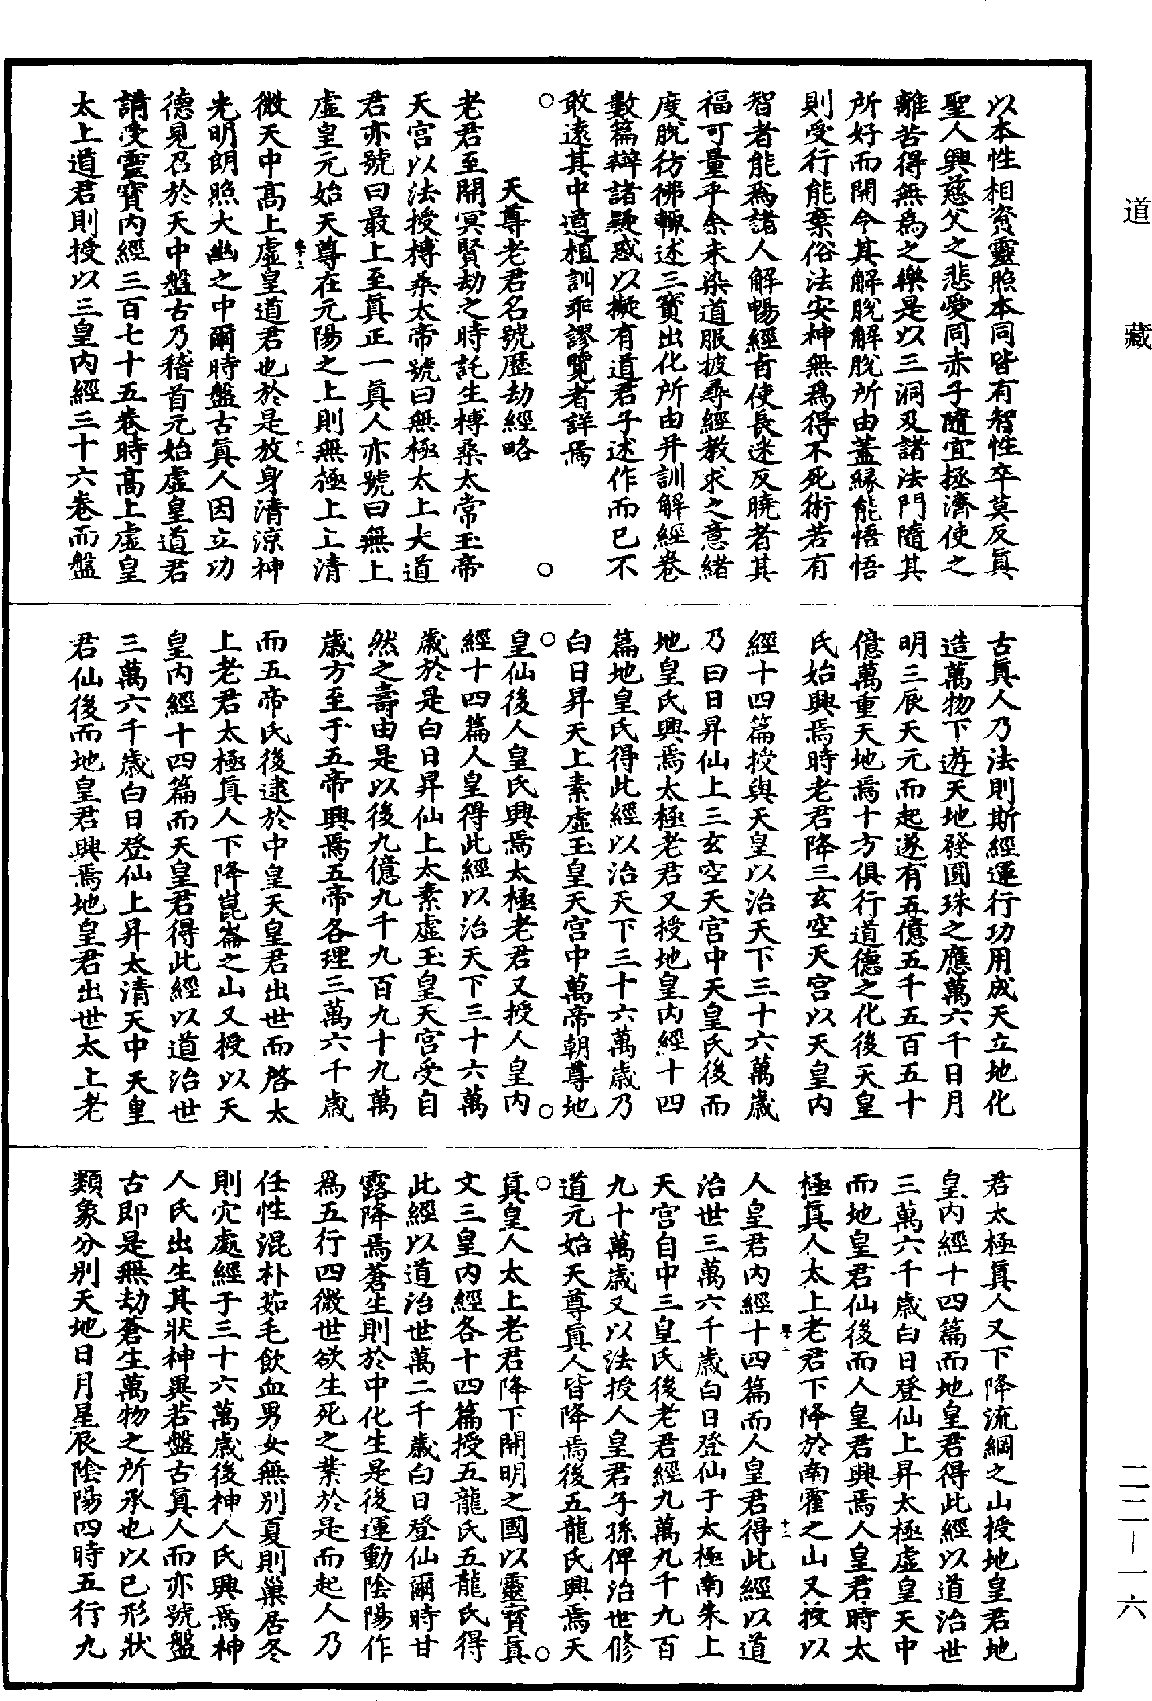 道藏
以本性相資靈照本同皆有智性卒莫反真
聖人興慈父之悲愛同赤子隨宜拯濟使之
離苦得無為之樂是以三洞及諸法門隨其
所好而開令其解脫解脫所由蓋緣能悟悟
則受行能棄俗法安神無為得不死術若有
智者能為諸人解暢經旨使長迷反曉者其
福可量乎余未染道服披尋經教求之意緒
度脫彷彿輒述三寶出化所由并訓解經卷
數篇辯諸疑惑以擬有道君子述作而已不
敢遠其中遺植訓乖謬覽者詳焉
○○
天尊老君名號歷劫經略
老君至開冥賢劫之時託生榑桑太常玉帝
天宮以法授榑桑太帝號曰無極太上大道
君亦號曰最上至真正一真人亦號曰無上
虛皇元始天尊在元陽之上則無極上上清
微天中高上虛皇道君也於是放身清涼神
光明朗照大幽之中爾時盤古真人因立功
德見召於天中盤古乃稽首元始虛皇道君
請受靈寶內經三百七十五卷時高上虛皇
太上道君則授以三皇內經三十六卷而盤
古真人乃法則斯經運行功用成天立地化
造萬物下遊天地發圓珠之應萬六千日月
明三辰天元而起遂有五億五千五百五十
億萬重天地焉十方俱行道德之化後天皇
氏始興焉時老君降三玄空天宮以天皇內
經十四篇授與天皇以治天下三十六萬歲
乃曰日昇仙上三玄空天宮中天皇氏後而
地皇氏興焉太極老君又授地皇內經十四
篇地皇氏得此經以治天下三十六萬歲乃
白日昇天上素虛玉皇天宮中萬帝朝尊地
○○
皇仙後人皇氏興焉太極老君又授人皇內
經十四篇人皇得此經以治天下三十六萬
歲於是白日昇仙上太素虛玉皇天宮受自
然之壽由是以後九億九千九百九十九萬
歲方至于五帝興焉五帝各理三萬六千歲
而五帝氏後逮於中皇天皇君出世而啓太
上老君太極真人下降崑崙之山又授以天
皇內經十四篇而天皇君得此經以道治世
三萬六千歲白日登仙上昇太清天中天皇
君仙後而地皇君興焉地皇君出世太上老
君太極真人又下降流綱之山授地皇君地
皇內經十四篇而地皇君得此經以道治世
三萬六千歲白日登仙上昇太極虛皇天中
而地皇君仙後而人皇君興焉人皇君時太
極真人太上老君下降於南霍之山又授以
人皇君內經十四篇而人皇君得此經以道
治世三萬六千歲白日登仙于太極南朱上
天宮自中三皇氏後老君經九萬九千九百
九十萬歲又以法授人皇君子孫俾治世修
道元始天尊真人皆降焉後五龍氏興焉天
○○
真皇人太上老君降下開明之國以靈寶真
文三皇內經各十四篇授五龍氏五龍氏得
此經以道治世萬二千歲白日登仙爾時甘
露降焉蒼生則於中化生是後運動陰陽作
為五行四微世欲生死之業於是而起人乃
任性混朴茹毛飲血男女無別夏則巢居冬
則穴處經于三十六萬歲後神人氏興焉神
人氏出生其狀神異若盤古真人而亦號盤
古即是無劫蒼生萬物之所承也以己形狀
類象分別天地日月星辰陰陽四時五行九
二二—一六